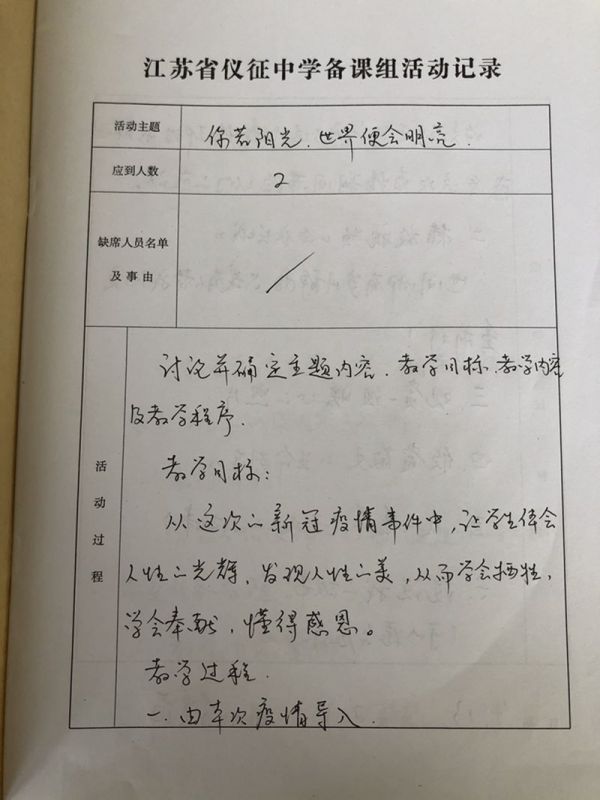 江苏省仪征中学备课组活动记录
活动主题 你若阳光，世界便会明亮．
应到人数 2
缺席人员名单
及事由
活动过程
讨论并确定主题内容、教学目标、教学内容
及教学程序．
教学目标：
从这次的新冠疫情事件中，让学生体会
人性的光辉，发现人性的美，从而学会牺牲，
学会奉献，懂得感恩。
教学过程．
一．由本次疫情导入．